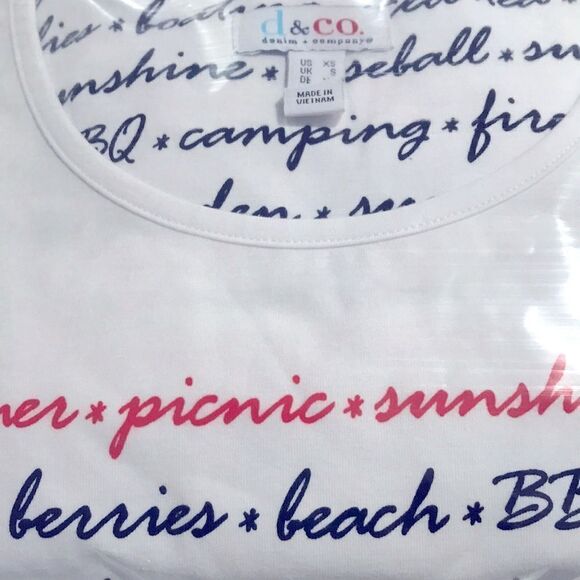 d&co.
denim + company®
US XS
UK S
DE
MADE IN
VIETNAM
*
nshine * seball * su
BQ * camping * fire
*
ner * picnic * sunsh
berries * beach * BB